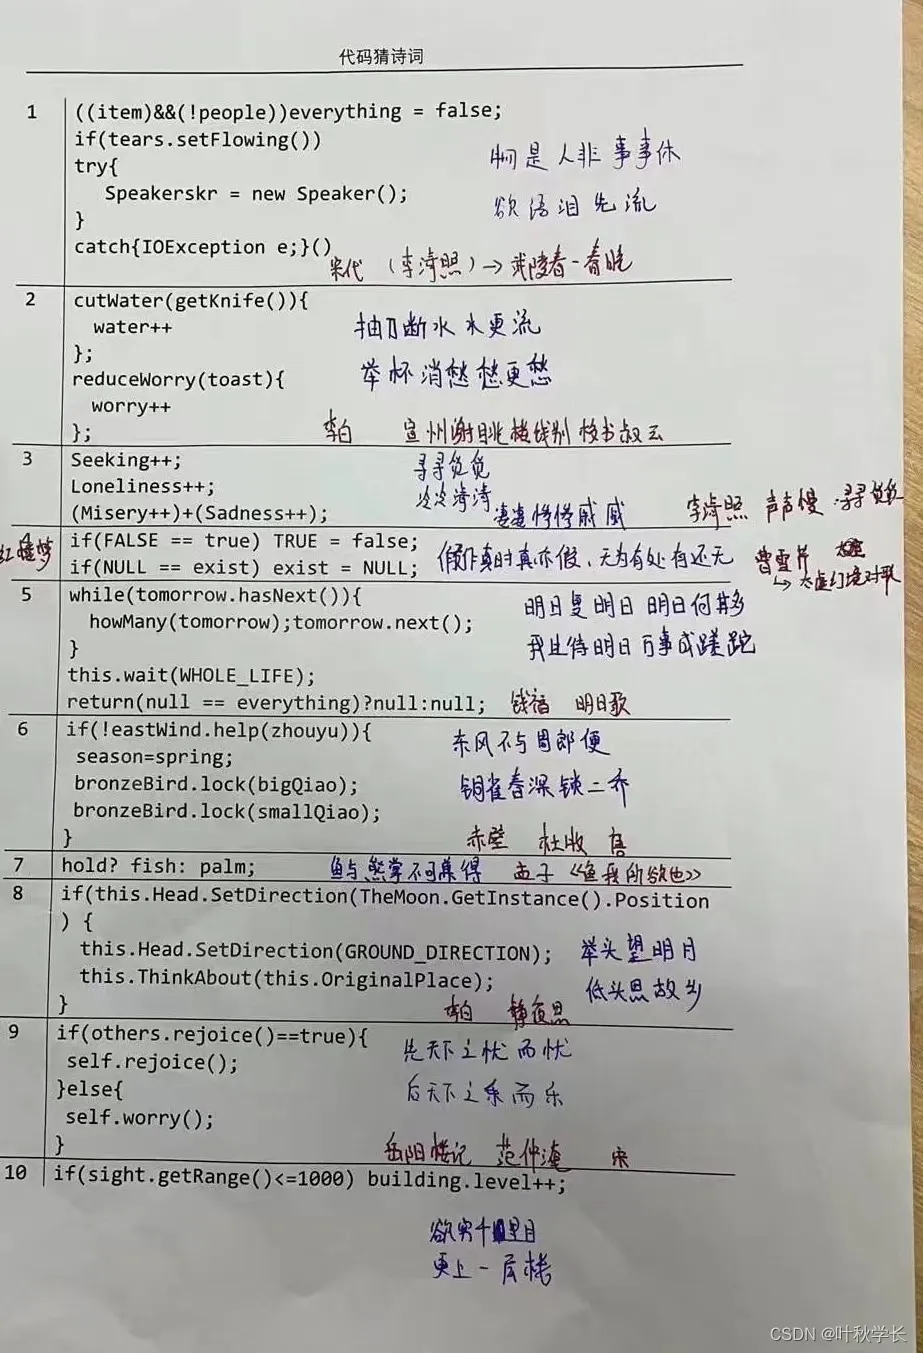 代码猜诗词
1 ((item)&&(!people))everything = false;
if(tears.setFlowing())
try{
物是人非事事休
Speakerskr = new Speaker();
欲语泪先流
}
catch{IOException e;}()
宋代 (李清照)→武陵春-春晚
2 cutWater(getKnife()){
water++
抽刀断水水更流
};
reduceWorry(toast){
举杯消愁愁更愁
worry++
};
李白 宣州谢朓楼饯别校书叔云
3 Seeking++;
寻寻觅觅
Loneliness++;
冷冷清清
(Misery++)+(Sadness++);
凄凄惨惨戚戚 李清照 声声慢·寻寻觅觅
红楼梦 if(FALSE == true) TRUE = false;
if(NULL == exist) exist = NULL;
假作真时真亦假、无为有处有还无 曹雪芹
→太虚幻境对联
5 while(tomorrow.hasNext()){
明日复明日 明日何其多
howMany(tomorrow);tomorrow.next();
}
我生待明日 万事成蹉跎
this.wait(WHOLE_LIFE);
return(null == everything)?null:null; 钱福 明日歌
6 if(!eastWind.help(zhouyu)){
东风不与周郎便
season=spring;
bronzeBird.lock(bigQiao);
铜雀春深锁二乔
bronzeBird.lock(smallQiao);
}
赤壁 杜牧 唐
7 hold? fish: palm; 鱼与熊掌不可兼得 孟子《鱼我所欲也》
8 if(this.Head.SetDirection(TheMoon.GetInstance().Position
) {
this.Head.SetDirection(GROUND_DIRECTION); 举头望明月
this.ThinkAbout(this.OriginalPlace);
低头思故乡
}
李白 静夜思
9 if(others.rejoice()==true){
先天下之忧而忧
self.rejoice();
}else{
后天下之乐而乐
self.worry();
}
岳阳楼记 范仲淹 宋
10 if(sight.getRange()<=1000) building.level++;
欲穷千里目
更上一层楼
CSDN @叶秋学长